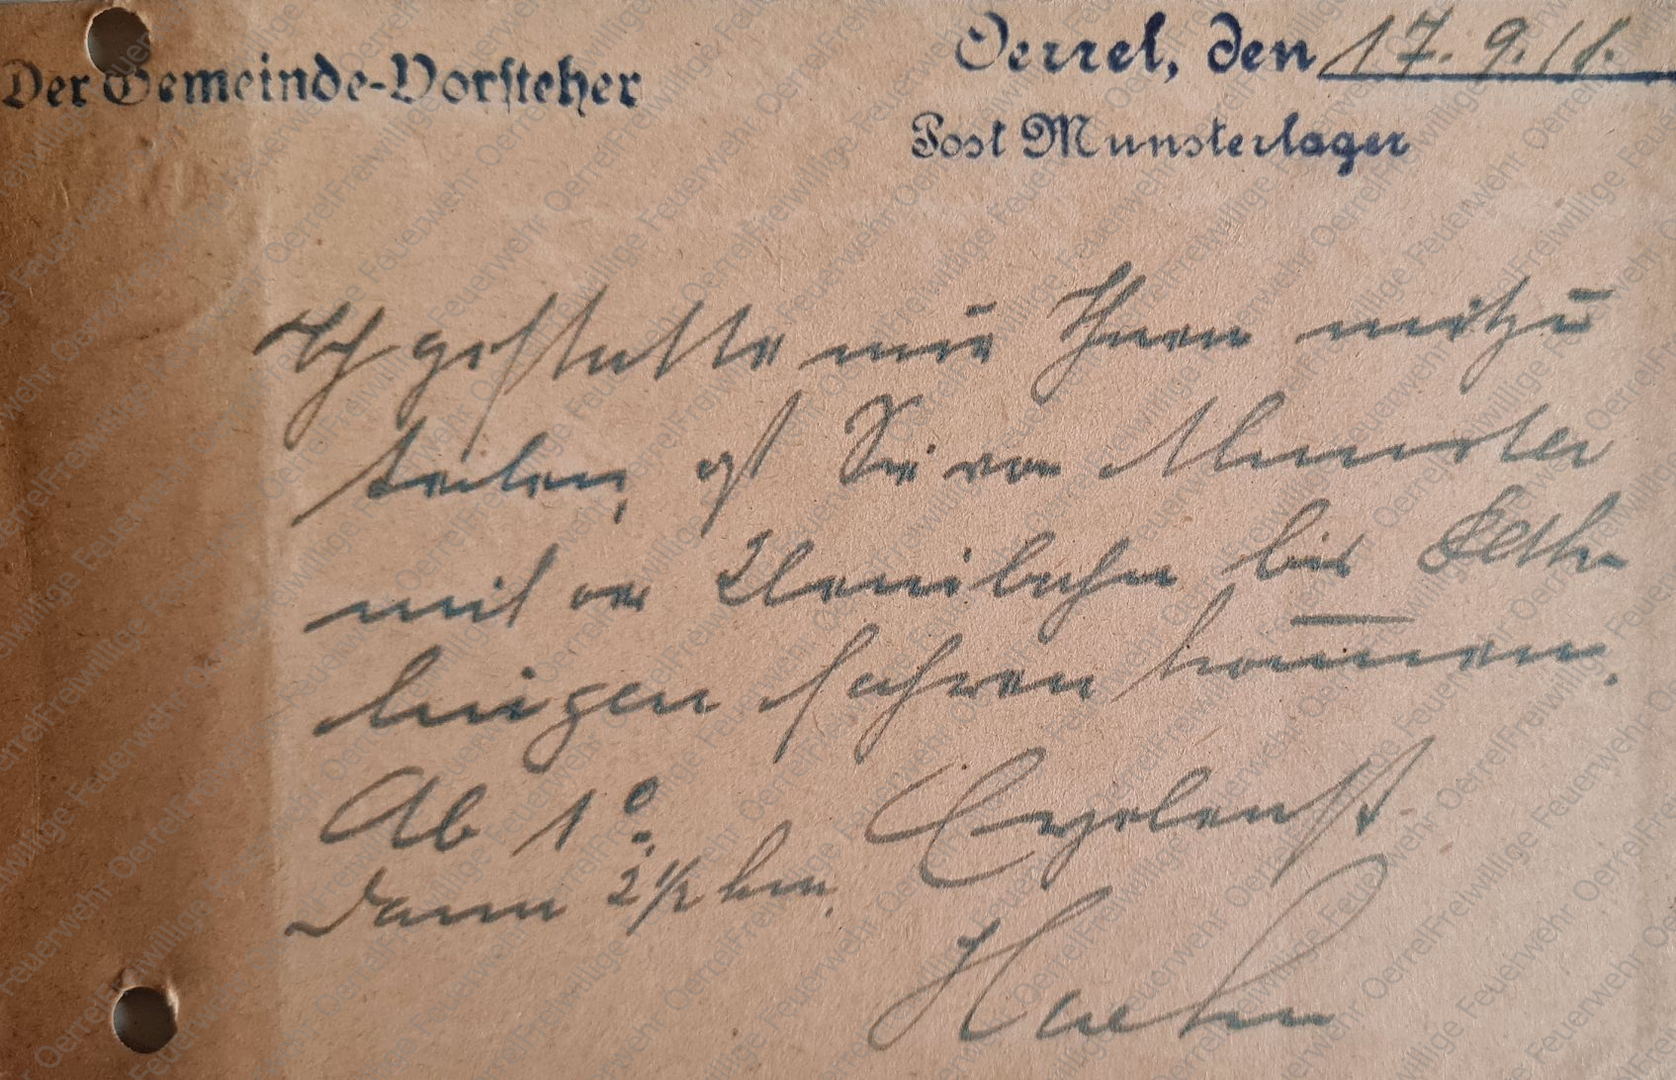 Der Gemeinde-Vorsteher
Oerrel, den 17. 9. 18.
Post Munsterlager
Ich gestatte mir Ihnen mitzu
teilen, Sie von Munster
mit der Kleinbahn bis
lingen fahren können.
Ab 1⁰.
Dann 2 1/2 km.
Freiwillige Feuerwehr Oerrel